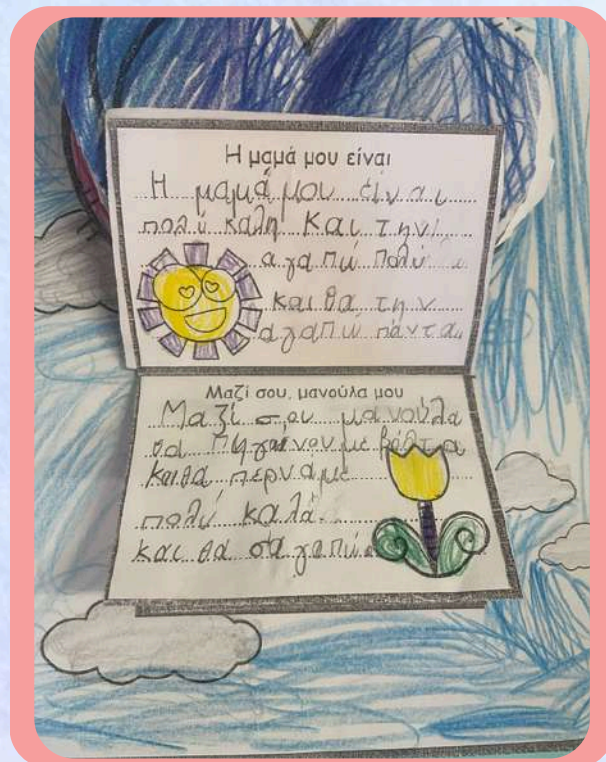 Η μαμά μου είναι
Η μαμά μου είναι
πολύ καλη και την
αγαπώ πολύ
και θα την
αγαπώ πάντα
Μαζί σου, μανούλα μου
Μαζί σου μανούλα
θα πηγαίνουμε βόλτα
και θα περνάμε
πολύ καλά
και θα σαγαπώ